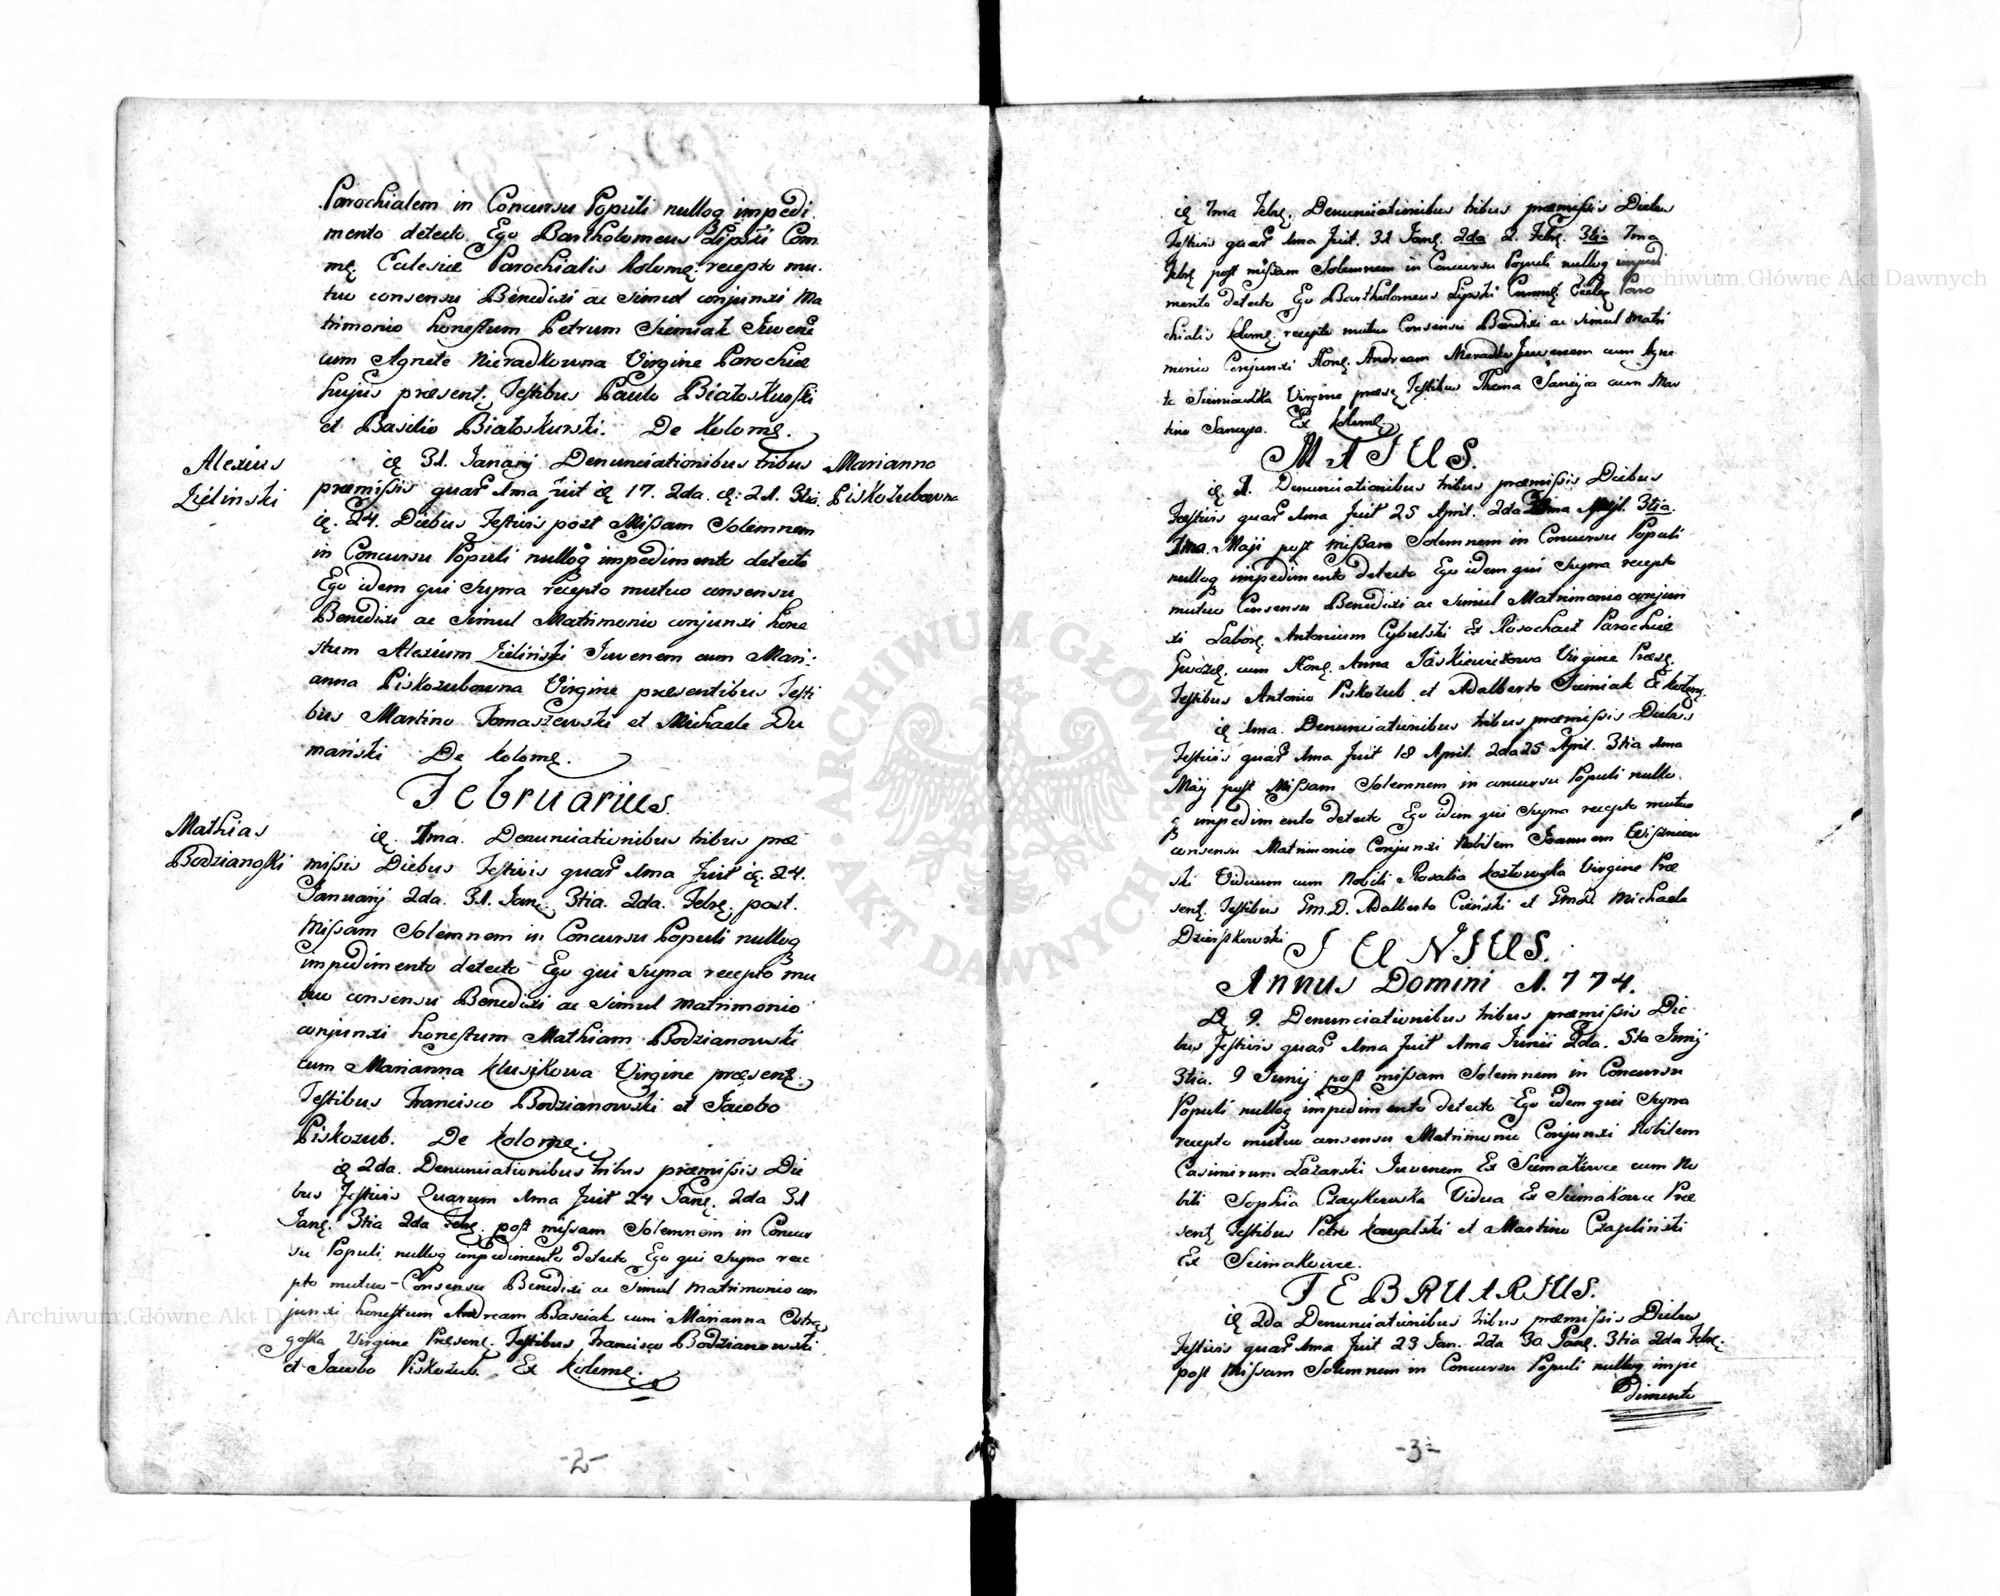 Parochialem in Concursu Populi nulloq impedi
mento detecto Ego Bartholomeus Lipski Com
mę. Ecclesiæ Parochialis kolomę: recepto mu.
tuo consensu Benedixi ac simul conjunxi Ma
trimonio honestum Petrum Siemiak Iuvene
cum Agnete Nieradkowna Virgine Parochiæ
hujus præsent. Testibus Paulo Białoskurski
et Basilio Białoskurski. De Kolomę.
Alexius
Zielinski
ię 31. Ianarij Denunciationibus tribus
Marianna
Piskozubowna
præmissis quar 1ma fuit ię 17. 2da. ię: 21. 3tia.
ię. 24. Diebus Festivis post Missam Solemnem
in Concursu Populi nulloq impedimento detecto
Ego idem qui Supra recepto mutuo consensu
Benedixi ac Simul Matrimonio conjunxi hone
stum Alexium Zieliński Iuvenem cum Mari:
anna Piskozubowna Virgine præsentibus Testi
bus Martino Tomaszewski et Michaele Du
mański De kolomę.
Februarius.
Mathias
Bodzianoski
ię. 7ma. Denunciationibus tribus præ
missis Diebus Festivis quar 1ma fuit ię. 24.
Ianuarij 2da. 31. Ianę. 3tia. 2da. Febrę. post.
Missam Solemnem in Concursu Populi nulloq
impedimento detecto Ego qui supra recepto mu
tuo consensu Benedixi ac simul matrimonio
conjunxi honestum Mathiam Bodzianowski
cum Marianna klusikowa Virgine præsent.
Testibus Francisco Bodzianowski et Jacobo
Piskozub. De kolomę.
ię 2da. Denunciationibus tribus præmissis Die
bus Festivis Quarum 1ma fuit 24 Ianę. 2da 31
Ianę. 3tia 2da Febrę. post missam Solemnem in Concur
su Populi nulloq impedimento detecto Ego qui supra rece
pto mutuo Consensu Benedixi ac Simul matrimonio con
junxi honestum Andream Basciak cum Marianna
Virgine Præsenę. Testibus Francisco Bodzianowski
et Jacobo Piskozub. Ex kolomę.
-2-
ię 7ma Febrę. Denunciationibus tribus præmissis Diebus
Festivis quar 1ma fuit. 31 Ianę. 2da 2. Febrę. 3tia 7ma
Febrę post missam Solemnem in Concursu Populi nulloq impedi
mento detecto Ego Bartholomeus Lipski Commę. Eccleę Paro
chialis kolomę: recepto mutuo Consensu Benedixi ac simul Matri
monio Conjunxi Honę. Andream Iuvenem cum Agne
te Siemiakka Virgine præsę Testibus Thoma Sanoyca cum Mar
tino Sanoyca. Ex kolomę
MAJUS.
ię. 1. Denunciationibus tribus præmissis Diebus
Festivis quar 1ma fuit 25 April. 2da 3tia.
Maji post missam Solemnem in Concursu Populi
nulloq impedimento detecto Ego idem qui Supra recepto
mutuo Consensu Benedixi ac Simul Matrimonio conjun
xi Laborę. Antonium Cybulski Ex Rosochacz Parochiæ
Gwozdę. cum Honę. Anna Jaskiewiczowa Virgine Præsę.
Testibus Antonio Piskozub et Adalberto Siemiak Ex kolomę.
ię 1ma. Denunciationibus tribus præmissis Diebus
Festivis quar 1ma fuit 18 April. 2da 25 April. 3tia 1ma
Maij post Missam Solemnem in concursu Populi nullo
q impedimento detecto Ego idem qui Supra recepto mutuo
consensu Matrimonio Conjunxi Nobilem Joannem Wiśniew
ski Viduum cum Nobili Rosalia kozłowska Virgine Præ
sent. Testibus Gm.D. Adalberto Cieński et Gm.D. Michaele
Dzierżkowski
JUNIUS.
Annus Domini 1774.
Dę 9. Denunciationibus tribus præmissis Die
bus Festivis quar 1ma fuit 1ma Iunii 2da. 5ta Iunij
3tia. 9 Iunij post missam Solemnem in Concursu
Populi nulloq impedimento detecto Ego idem qui Supra
recepto mutuo consensu Matrimonio Conjunxi Nobilem
Casimirum Łazarski Iuvenem Ex Siemakowce cum No
bili Sophia Czaykowska Vidua Ex Siemakowce Præ
sent Testibus Petro Kowalski et Martino Czapliński
Ex Siemakowce.
FEBRUARIUS.
ię 2da Denunciationibus tribus præmissis Diebus
Festivis quar 1ma fuit 23 Ian. 2da 30 Ianę. 3tia 2da Febrę.
post Missam Solemnem in Concursu Populi nulloq impe
dimento
-3-
Archiwum Główne Akt Dawnych
Archiwum Główne Akt Dawnych
ARCHIWUM GŁÓWNE AKT DAWNYCH